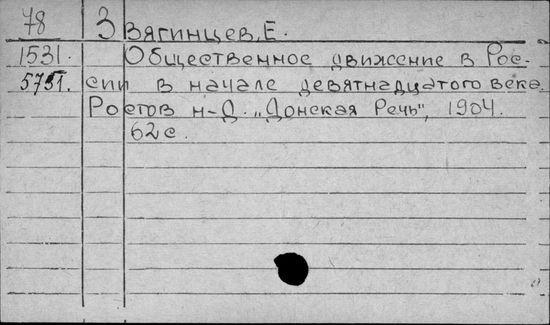 78 Звягинцев, Е.
1531. Общественное движение в Рос-
5751. сии в начале девятнадцатого века.
Ростов н-Д. „Донская Речь", 1904.
62 с.